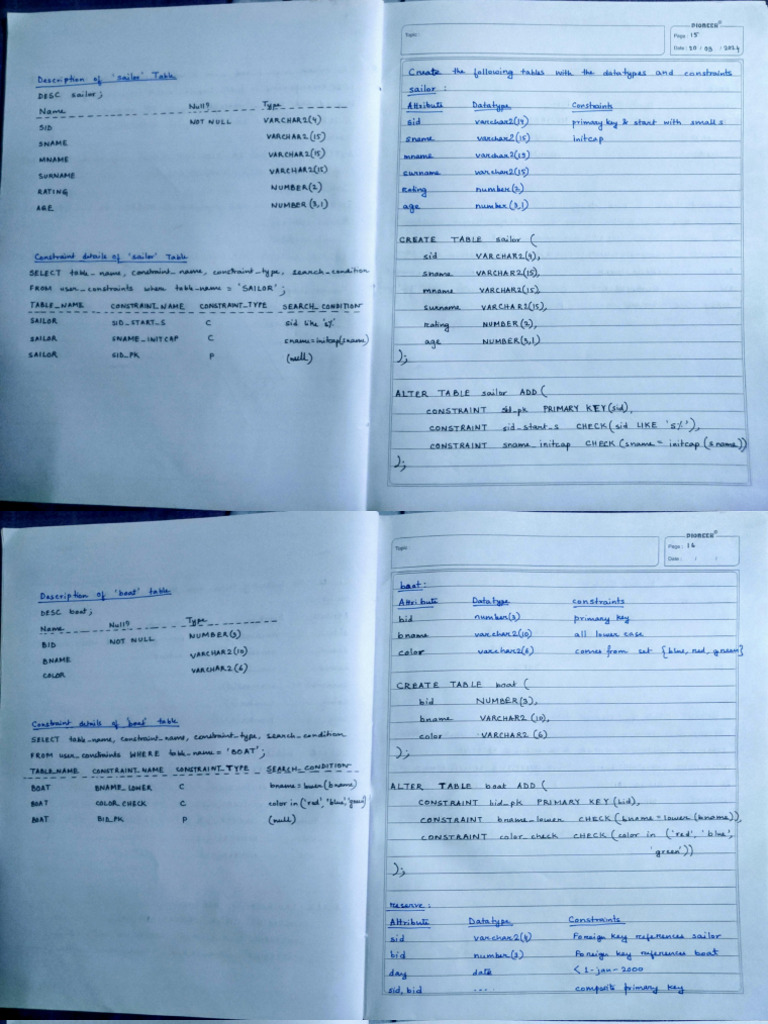 Description of 'sailor' Table
DESC sailor;
Name Null? Type
SID NOT NULL VARCHAR2(4)
SNAME VARCHAR2(15)
MNAME VARCHAR2(15)
SURNAME VARCHAR2(15)
RATING NUMBER(2)
AGE NUMBER(3,1)
Constraint details of 'sailor' Table
SELECT table_name, constraint_name, constraint_type, search_condition
FROM user_constraints where table_name = 'SAILOR';
TABLE_NAME CONSTRAINT_NAME CONSTRAINT_TYPE SEARCH_CONDITION
SAILOR SID_START_S C sid like 's%'
SAILOR SNAME_INITCAP C sname=initcap(sname)
SAILOR SID_PK P (null)
PIONEER
Topic:
Page: 15
Date: 20/09/2024
Create the following tables with the datatypes and constraints
sailor:
Attribute Datatype Constraints
sid varchar2(4) primary key & start with small s
sname varchar2(15) Initcap
mname varchar2(15)
surname varchar2(15)
rating number(2)
age number(3,1)
CREATE TABLE sailor (
sid VARCHAR2(4),
sname VARCHAR2(15),
mname VARCHAR2(15),
surname VARCHAR2(15),
rating NUMBER(2),
age NUMBER(3,1)
);
ALTER TABLE sailor ADD (
CONSTRAINT sid_pk PRIMARY KEY(sid),
CONSTRAINT sid_start_s CHECK(sid LIKE 's%'),
CONSTRAINT sname_initcap CHECK(sname = initcap(sname))
);
Description of 'boat' table
DESC boat;
Name Null? Type
BID NOT NULL NUMBER(3)
BNAME VARCHAR2(10)
COLOR VARCHAR2(6)
Constraint details of 'boat' table
SELECT table_name, constraint_name, constraint_type, search_condition
FROM user_constraints WHERE table_name = 'BOAT';
TABLE_NAME CONSTRAINT_NAME CONSTRAINT_TYPE SEARCH_CONDITION
BOAT BNAME_LOWER C bname=lower(bname)
BOAT COLOR_CHECK C color in ('red','blue','green')
BOAT BID_PK P (null)
PIONEER
Topic:
Page: 16
Date: / /
boat:
Attribute Datatype constraints
bid number(3) primary key
bname varchar2(10) all lower case
color varchar2(6) comes from set {blue, red, green}
CREATE TABLE boat (
bid NUMBER(3),
bname VARCHAR2 (10),
color VARCHAR2 (6)
);
ALTER TABLE boat ADD (
CONSTRAINT bid_pk PRIMARY KEY(bid),
CONSTRAINT bname_lower CHECK(bname=lower(bname)),
CONSTRAINT color_check CHECK(color in ('red', 'blue',
'green'))
);
reserve:
Attribute Datatype Constraints
sid varchar2(4) Foreign key references sailor
bid number(3) Foreign key references boat
day date < 1-jan-2000
sid, bid .... composite primary key